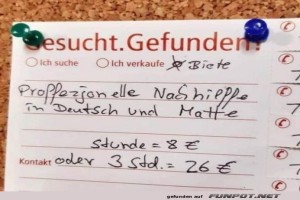 Gesucht.Gefunden!
Ich suche Ich verkaufe Biete
Proffezjonelle Nachhielffe
in Deutsch und Matte
Stunde = 8 €
Kontakt oder 3 Std. = 26 €
gefunden auf FUNPOT.NET